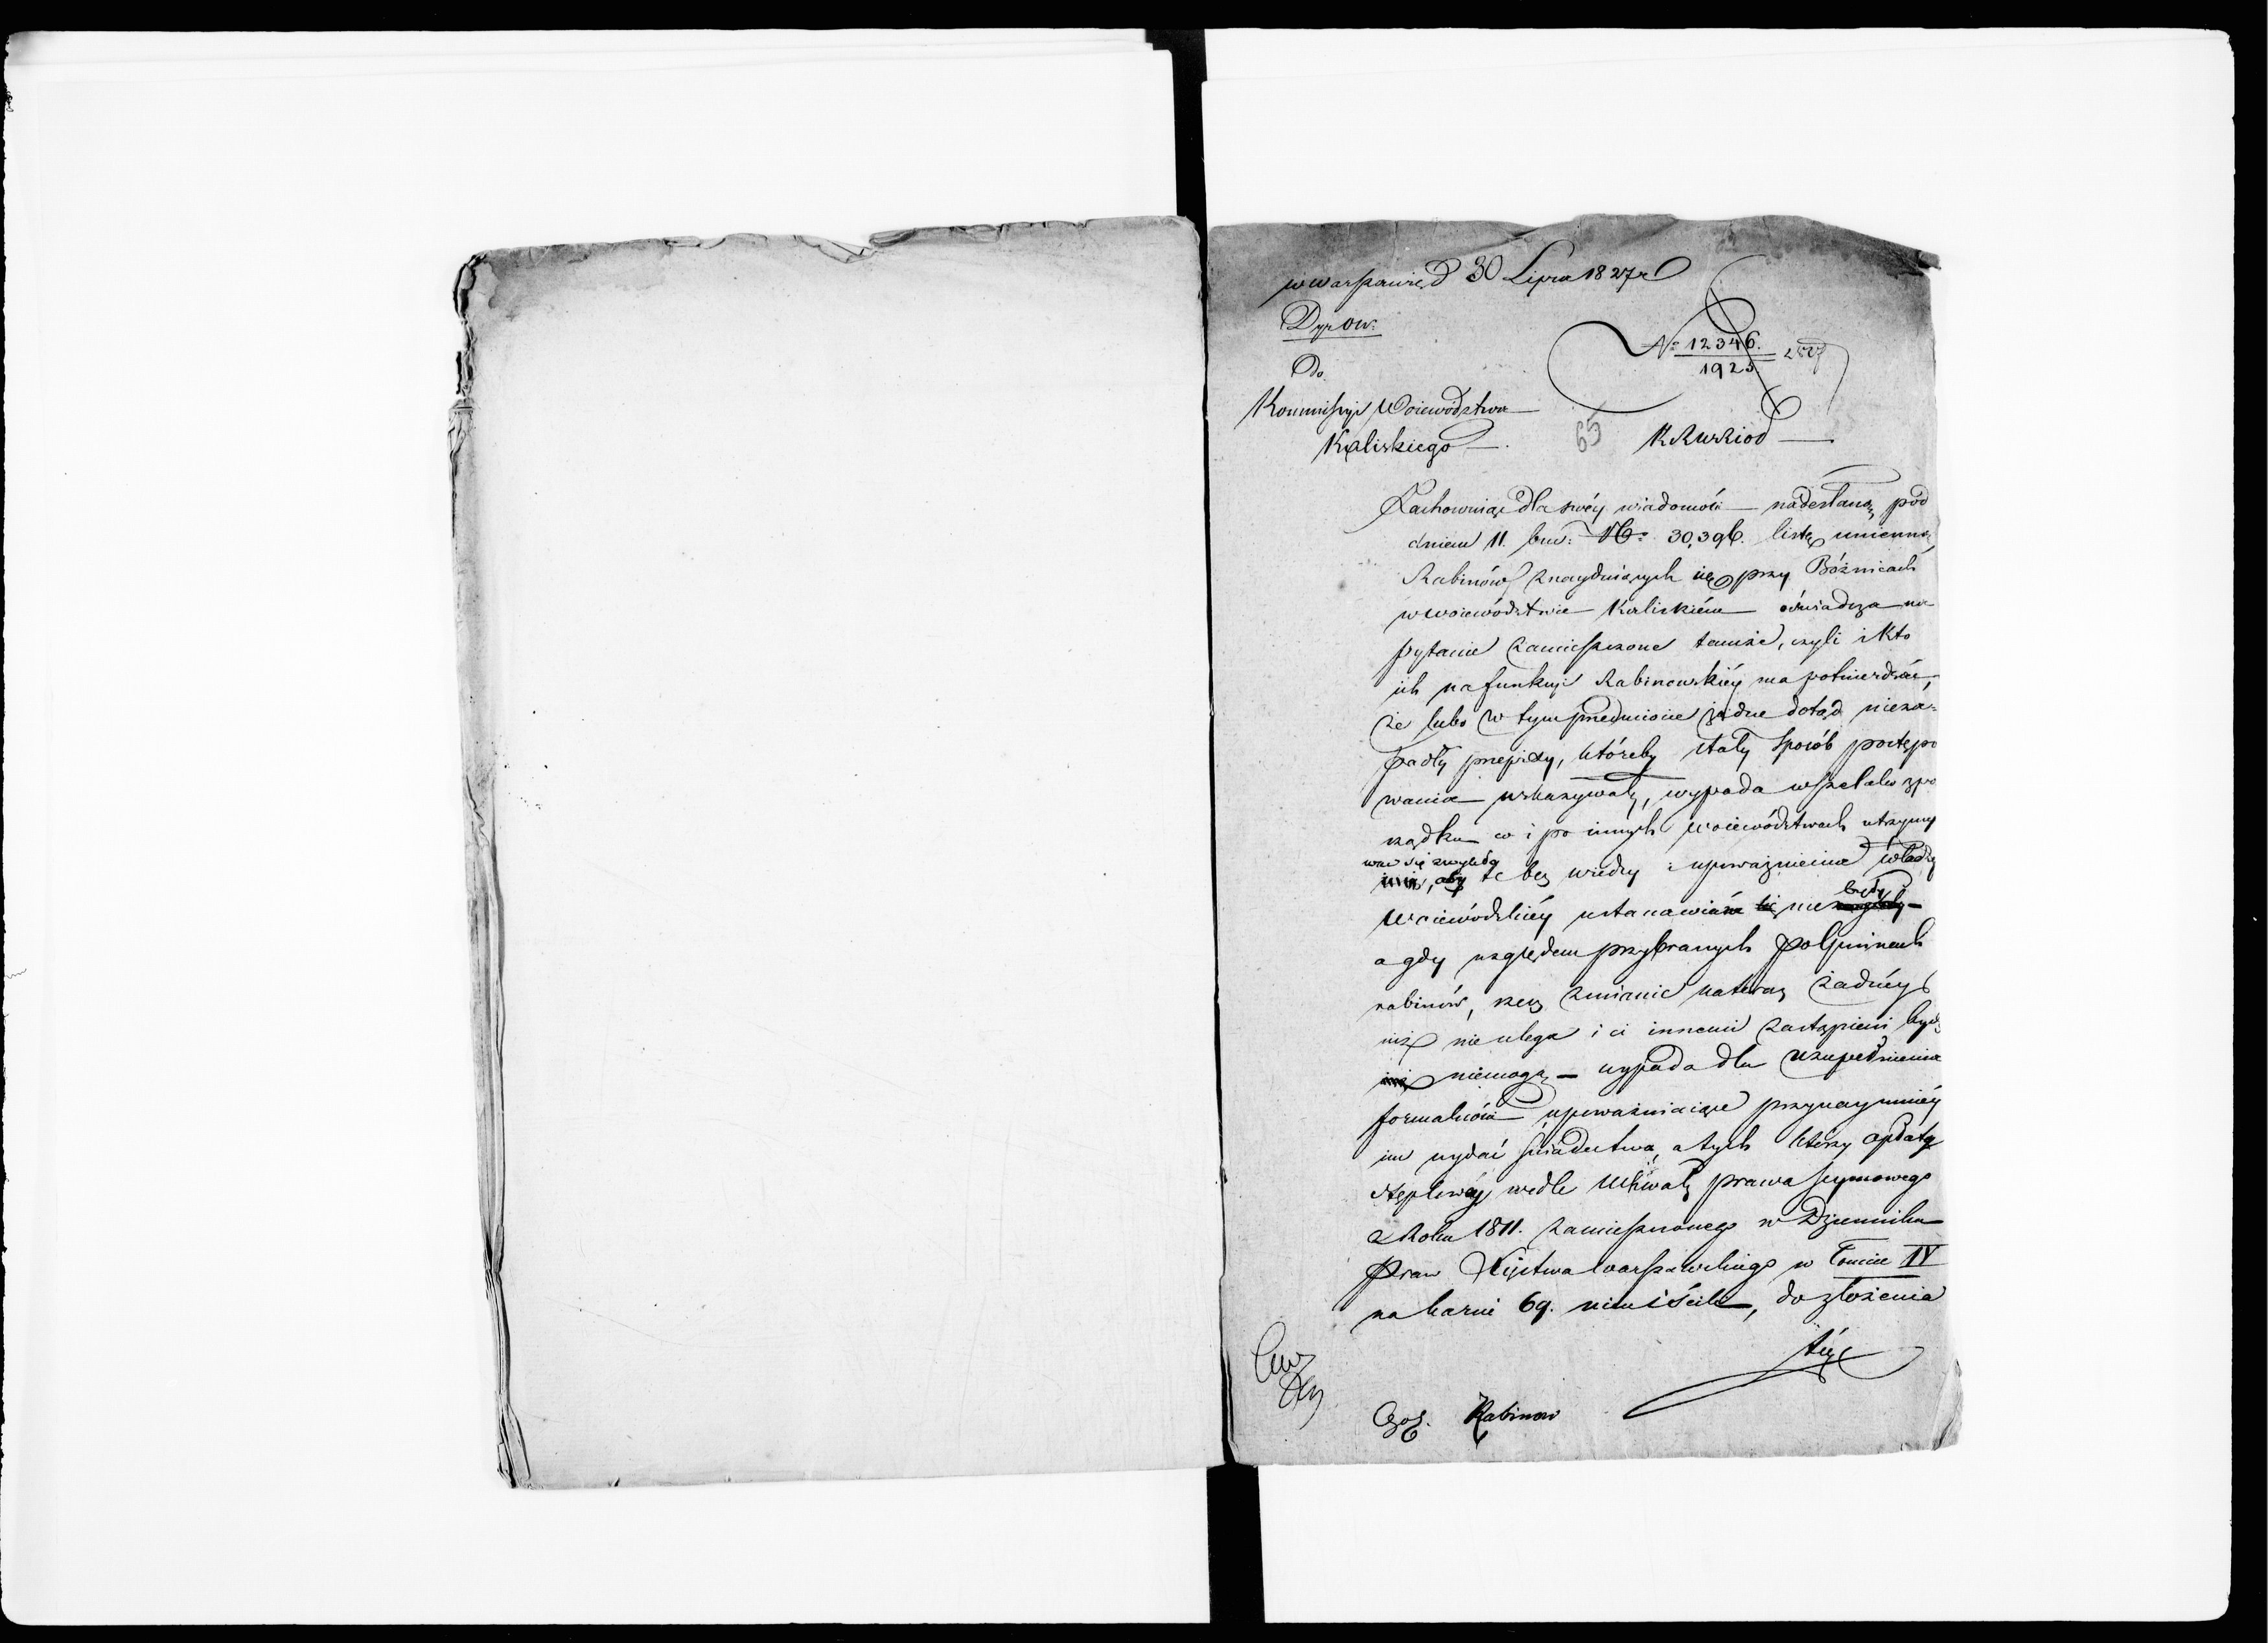 w Warszawie d 30 Lipca 1827 r
Dyr ow:
Do
№ 12346.
1925.
Kommissyi Województwa
Kaliskiego
65
Zachowuiąc dla swéy wiadomości nadesłaną pod
dniem 11. bm: № 30,396. listę imienną
Rabinów znayduiących się przy Bóżnicach
w województwie Kaliskiém oświadcza na
pytanie zamieszczone tamże, czyli i kto
ich na funkcyi Rabinowskiéy ma potwierdzać,
że lubo w tym przedmiocie żadne dotąd nieza-
padły przepisy, któreby stały sposób postępo
wania wskazywały, wypada wszelako z po
rządku co i po innych województwach utrzymy
wać się zwykło
aby te bez wiedzy i upoważnienia władzy
były
Woiewódzkiéy ustanawiane nie
a gdy względem przybranych po Gminach
rabinów, rzecz zmianie na teraz żadnéy
iuż nie ulega i ci innemi zastąpieni bydź
niemogą – wypada dla uzupełnienia
formalności upoważniaiące przynaymniéy
im wydać świadectwa, a tych którzy opłaty
stęplowéy wedle uchwały prawa seymowego
z Roku 1811. zamieszczonego w Dzienniku
Praw Xięstwa Warszawskiego w Tomie IV
na karcie 69. nieuiścili, do złożenia
téyże
Rabinow